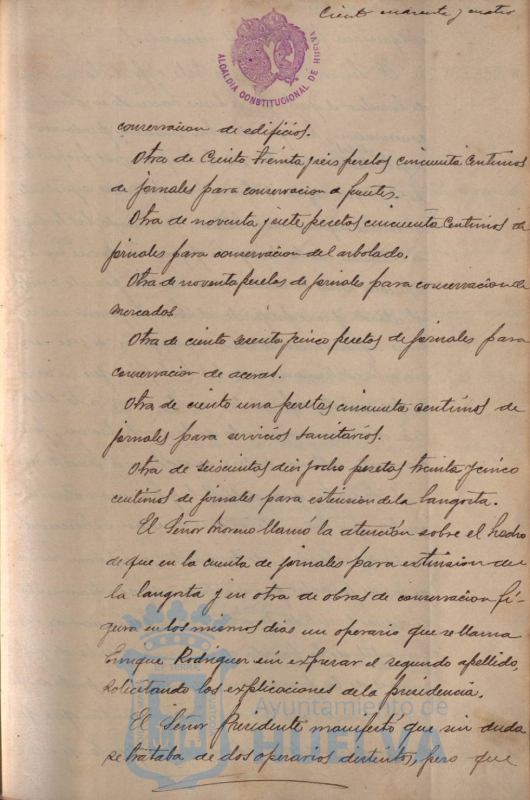 Ciento cuarenta y cuatro
ALCALDIA CONSTITUCIONAL DE HUELVA
conservacion de edificios.
Otra de Ciento treinta y seis pesetas cincuenta centimos
de jornales para conservacion de fuentes.
Otra de noventa y siete pesetas cincuenta centimos de
jornales para conservacion del arbolado.
Otra de noventa pesetas de jornales para conservacion de
mercados
Otra de ciento sesenta y cinco pesetas de jornales para
conservacion de aceras.
Otra de ciento una pesetas cincuenta centimos de
jornales para servicios sanitarios.
Otra de seiscientas diez y ocho pesetas treinta y cinco
centimos de jornales para estension de la langosta.
El Señor Moreno llamó la atención sobre el hecho
de que en la cuenta de jornales para extension de
la langosta y en otra de obras de conservacion fi-
gura en los mismos dias un operario que se llama
Enrique Rodriguez sin expresar el segundo apellido,
solicitando las explicaciones de la presidencia.
El Señor Presidente manifestó que sin duda
se trataba de dos operarios distintos, pero que
Ayuntamiento de
HUELVA